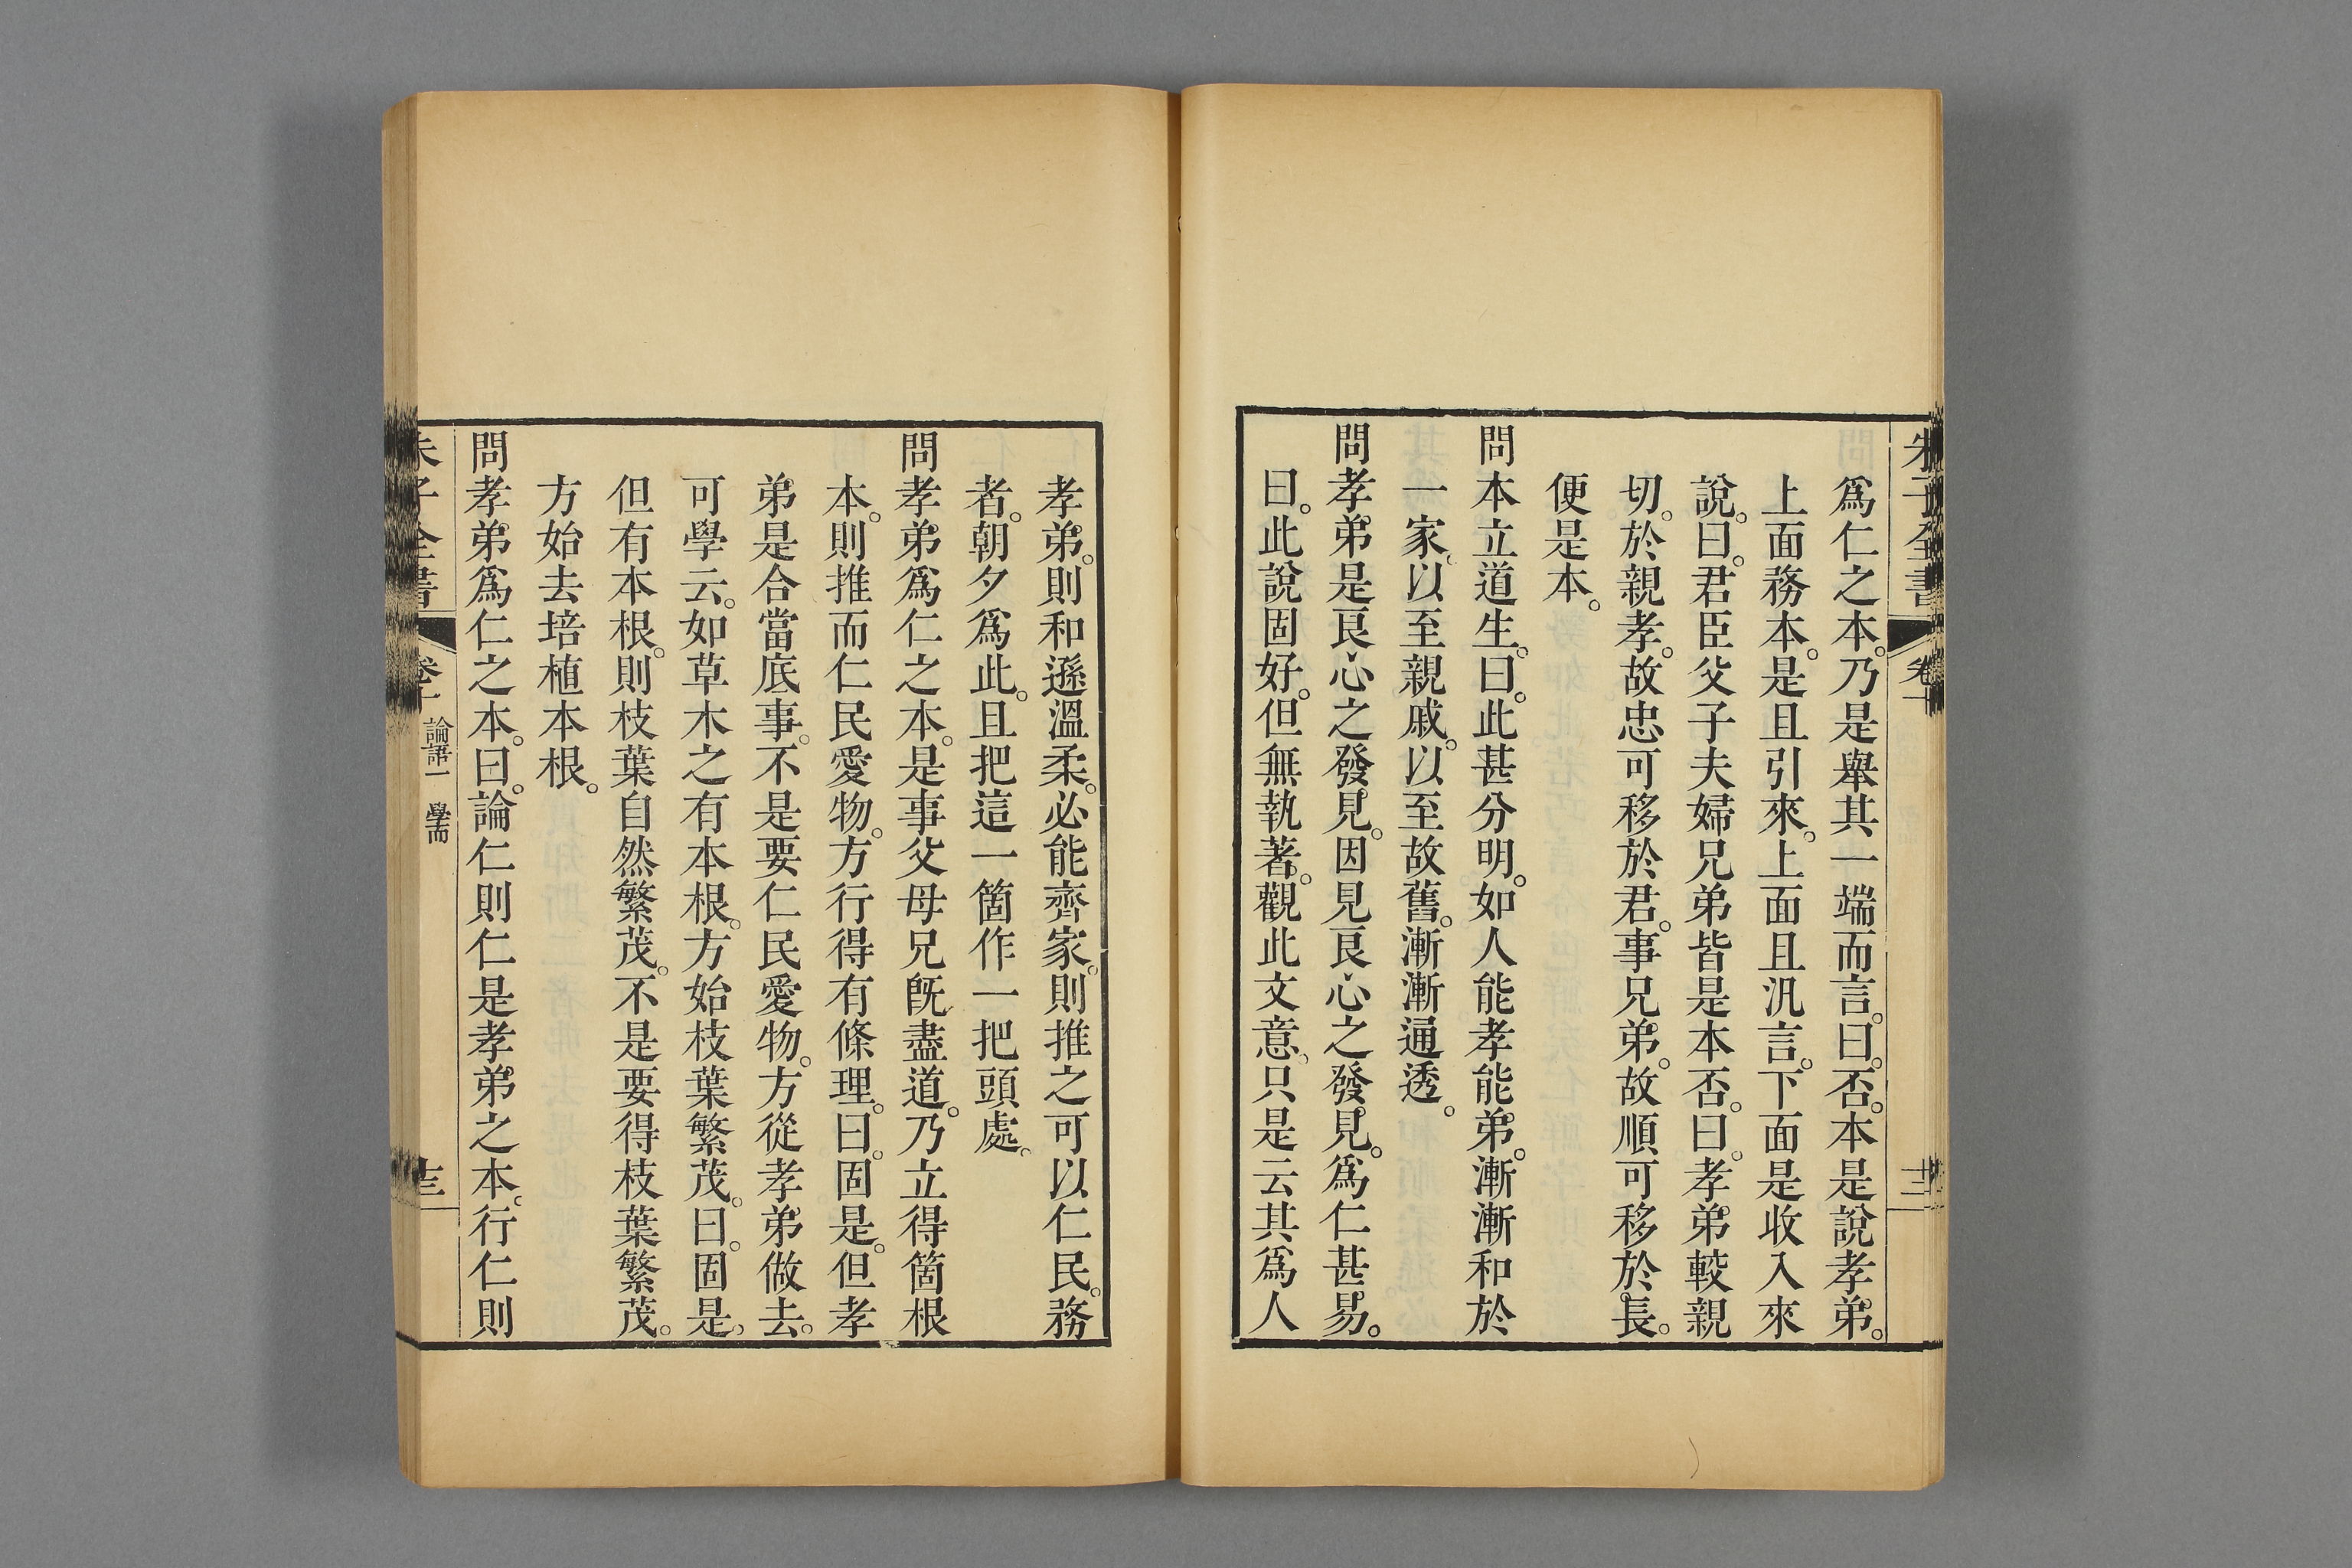 朱子全書 卷十 十二
爲仁之本。乃是舉其一端而言。曰。否。本是說孝弟。
上面務本。是且引來。上面且汎言。下面是收入來
說。曰。君臣父子夫婦兄弟皆是本否。曰。孝弟較親
切。於親孝。故忠可移於君。事兄弟。故順可移於長。
便是本。
問本立道生。曰。此甚分明。如人能孝能弟。漸漸和於
一家。以至親戚。以至故舊。漸漸通透。
問孝弟是良心之發見。因見良心之發見。爲仁甚易。
曰。此說固好。但無執著。觀此文意。只是云其爲人
孝弟。則和遜溫柔。必能齊家。則推之可以仁民。務
者。朝夕爲此。且把這一箇作一把頭處。
問孝弟爲仁之本。是事父母兄既盡道。乃立得箇根
本。則推而仁民愛物。方行得有條理。曰。固是。但孝
弟是合當底事。不是要仁民愛物。方從孝弟做去。
可學云。如草木之有本根。方始枝葉繁茂。曰。固是。
但有本根。則枝葉自然繁茂。不是要得枝葉繁茂。
方始去培植本根。
問孝弟爲仁之本。曰。論仁則仁是孝弟之本。行仁則
朱子全書 卷十 論語一 學而